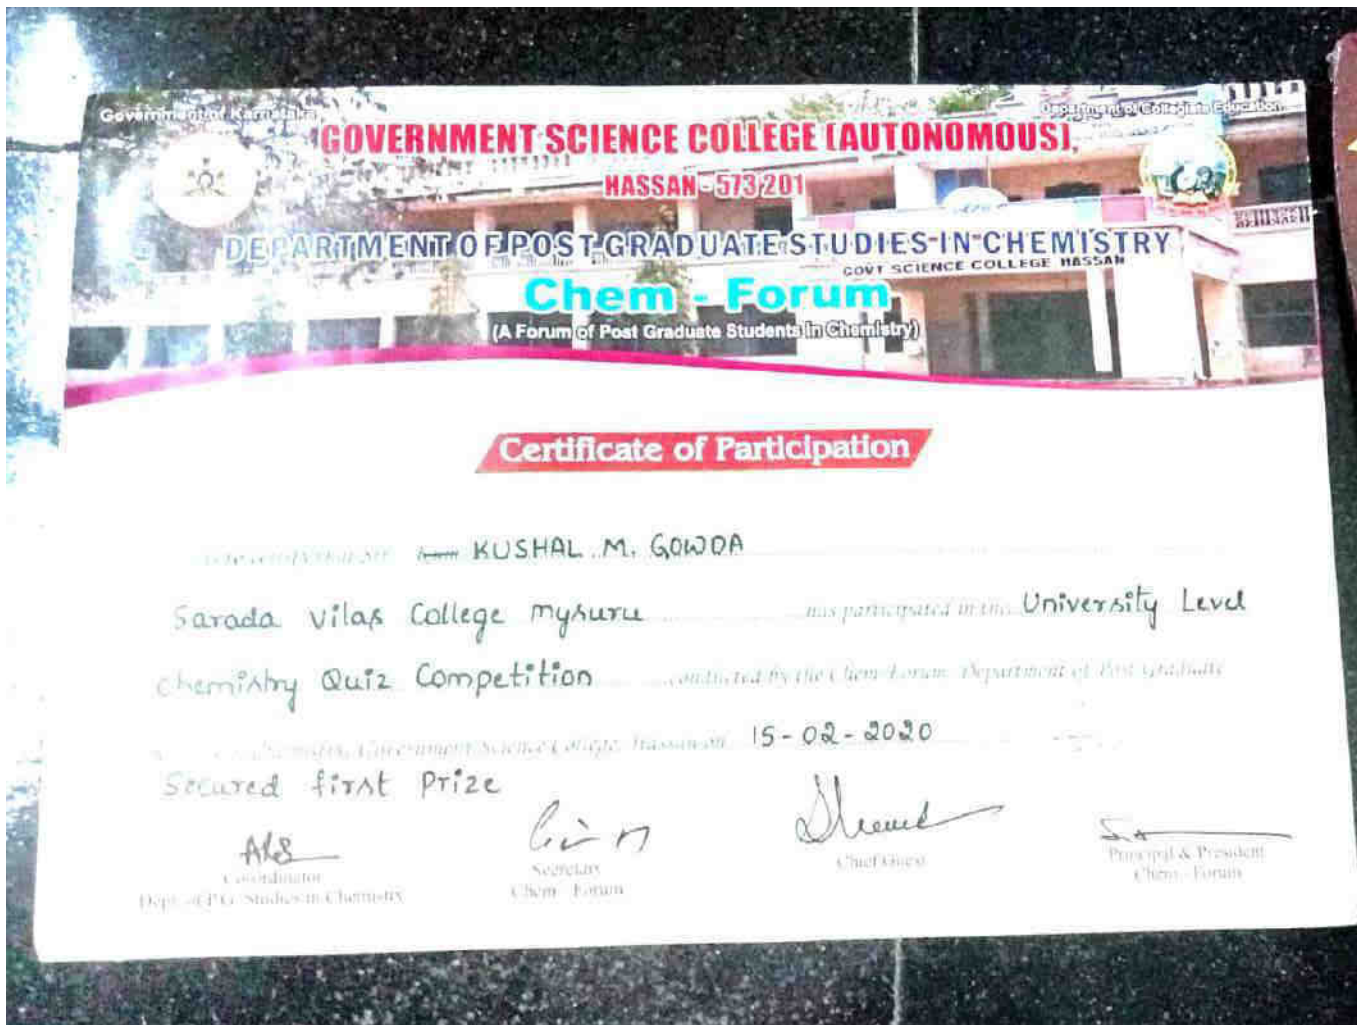 Government of Karnataka
Department of Collegiate Education
GOVERNMENT SCIENCE COLLEGE (AUTONOMOUS),
HASSAN - 573 201
DEPARTMENT OF POST GRADUATE STUDIES IN CHEMISTRY
GOVT SCIENCE COLLEGE HASSAN
Chem - Forum
(A Forum of Post Graduate Students in Chemistry)
Certificate of Participation
KUSHAL M. GOWDA
Sarada Vilas College Mysuru has participated in the University Level
Chemistry Quiz Competition conducted by the Chem-Forum, Department of Post Graduate
Chemistry, Government Science College, Hassan on 15-02-2020
Secured first Prize
Co-ordinator
Dept. of P.G. Studies in Chemistry
Secretary
Chem - Forum
Chief Guest
Principal & President
Chem - Forum